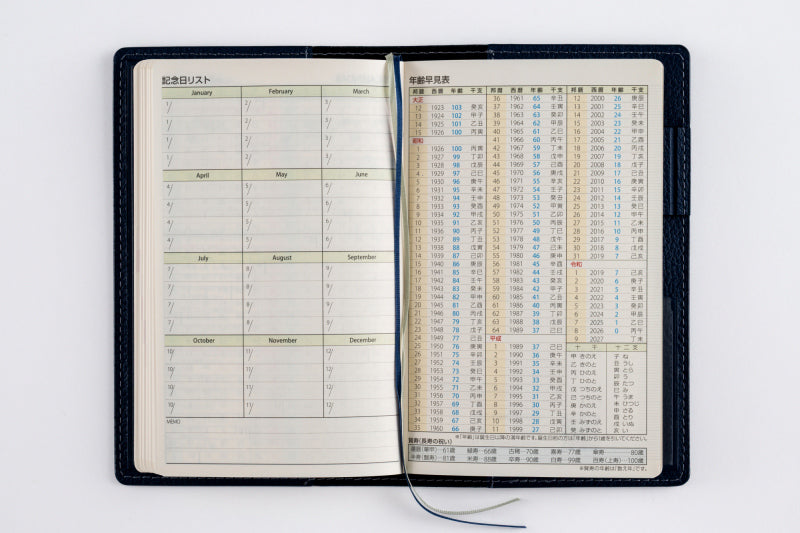 記念日リスト
January February March
1/ 2/ 3/
1/ 2/ 3/
1/ 2/ 3/
1/ 2/ 3/
April May June
4/ 5/ 6/
4/ 5/ 6/
4/ 5/ 6/
4/ 5/ 6/
July August September
7/ 8/ 9/
7/ 8/ 9/
7/ 8/ 9/
7/ 8/ 9/
October November December
10/ 11/ 12/
10/ 11/ 12/
10/ 11/ 12/
10/ 11/ 12/
MEMO
年齢早見表
邦暦 西暦 年齢 干支
大正
12 1923 103 癸亥
13 1924 102 甲子
14 1925 101 乙丑
15 1926 100 丙寅
昭和
1 1926 100 丙寅
2 1927 99 丁卯
3 1928 98 戊辰
4 1929 97 己巳
5 1930 96 庚午
6 1931 95 辛未
7 1932 94 壬申
8 1933 93 癸酉
9 1934 92 甲戌
10 1935 91 乙亥
11 1936 90 丙子
12 1937 89 丁丑
13 1938 88 戊寅
14 1939 87 己卯
15 1940 86 庚辰
16 1941 85 辛巳
17 1942 84 壬午
18 1943 83 癸未
19 1944 82 甲申
20 1945 81 乙酉
21 1946 80 丙戌
22 1947 79 丁亥
23 1948 78 戊子
24 1949 77 己丑
25 1950 76 庚寅
26 1951 75 辛卯
27 1952 74 壬辰
28 1953 73 癸巳
29 1954 72 甲午
30 1955 71 乙未
31 1956 70 丙申
32 1957 69 丁酉
33 1958 68 戊戌
34 1959 67 己亥
35 1960 66 庚子
邦暦 西暦 年齢 干支
36 1961 65 辛丑
37 1962 64 壬寅
38 1963 63 癸卯
39 1964 62 甲辰
40 1965 61 乙巳
41 1966 60 丙午
42 1967 59 丁未
43 1968 58 戊申
44 1969 57 己酉
45 1970 56 庚戌
46 1971 55 辛亥
47 1972 54 壬子
48 1973 53 癸丑
49 1974 52 甲寅
50 1975 51 乙卯
51 1976 50 丙辰
52 1977 49 丁巳
53 1978 48 戊午
54 1979 47 己未
55 1980 46 庚申
56 1981 45 辛酉
57 1982 44 壬戌
58 1983 43 癸亥
59 1984 42 甲子
60 1985 41 乙丑
61 1986 40 丙寅
62 1987 39 丁卯
63 1988 38 戊辰
64 1989 37 己巳
平成
1 1989 37 己巳
2 1990 36 庚午
3 1991 35 辛未
4 1992 34 壬申
5 1993 33 癸酉
6 1994 32 甲戌
7 1995 31 乙亥
8 1996 30 丙子
9 1997 29 丁丑
10 1998 28 戊寅
11 1999 27 己卯
邦暦 西暦 年齢 干支
12 2000 26 庚辰
13 2001 25 辛巳
14 2002 24 壬午
15 2003 23 癸未
16 2004 22 甲申
17 2005 21 乙酉
18 2006 20 丙戌
19 2007 19 丁亥
20 2008 18 戊子
21 2009 17 己丑
22 2010 16 庚寅
23 2011 15 辛卯
24 2012 14 壬辰
25 2013 13 癸巳
26 2014 12 甲午
27 2015 11 乙未
28 2016 10 丙申
29 2017 9 丁酉
30 2018 8 戊戌
31 2019 7 己亥
令和
1 2019 7 己亥
2 2020 6 庚子
3 2021 5 辛丑
4 2022 4 壬寅
5 2023 3 癸卯
6 2024 2 甲辰
7 2025 1 乙巳
8 2026 0 丙午
9 2027 丁未
十干
甲 きのえ
乙 きのと
丙 ひのえ
丁 ひのと
戊 つちのえ
己 つちのと
庚 かのえ
辛 かのと
壬 みずのえ
癸 みずのと
十二支
子 ね
丑 うし
寅 とら
卯 う
辰 たつ
巳 み
午 うま
未 ひつじ
申 さる
酉 とり
戌 いぬ
亥 い
※「年齢」は誕生日以降の満年齢です。誕生日前の方は「年齢」から1歳を引いてください。
賀寿(長寿の祝い)
還暦(華甲)…61歳 緑寿…66歳 古稀…70歳 喜寿…77歳 傘寿…80歳
半寿(盤寿)…81歳 米寿…88歳 卒寿…90歳 白寿…99歳 百寿(上寿)…100歳
※賀寿の年齢は「数え年」です。